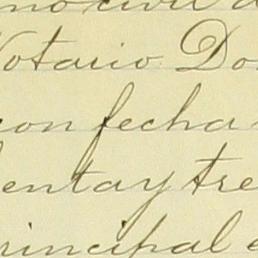 no civil d
Notario Do
con fecha
entay tre
rincipal